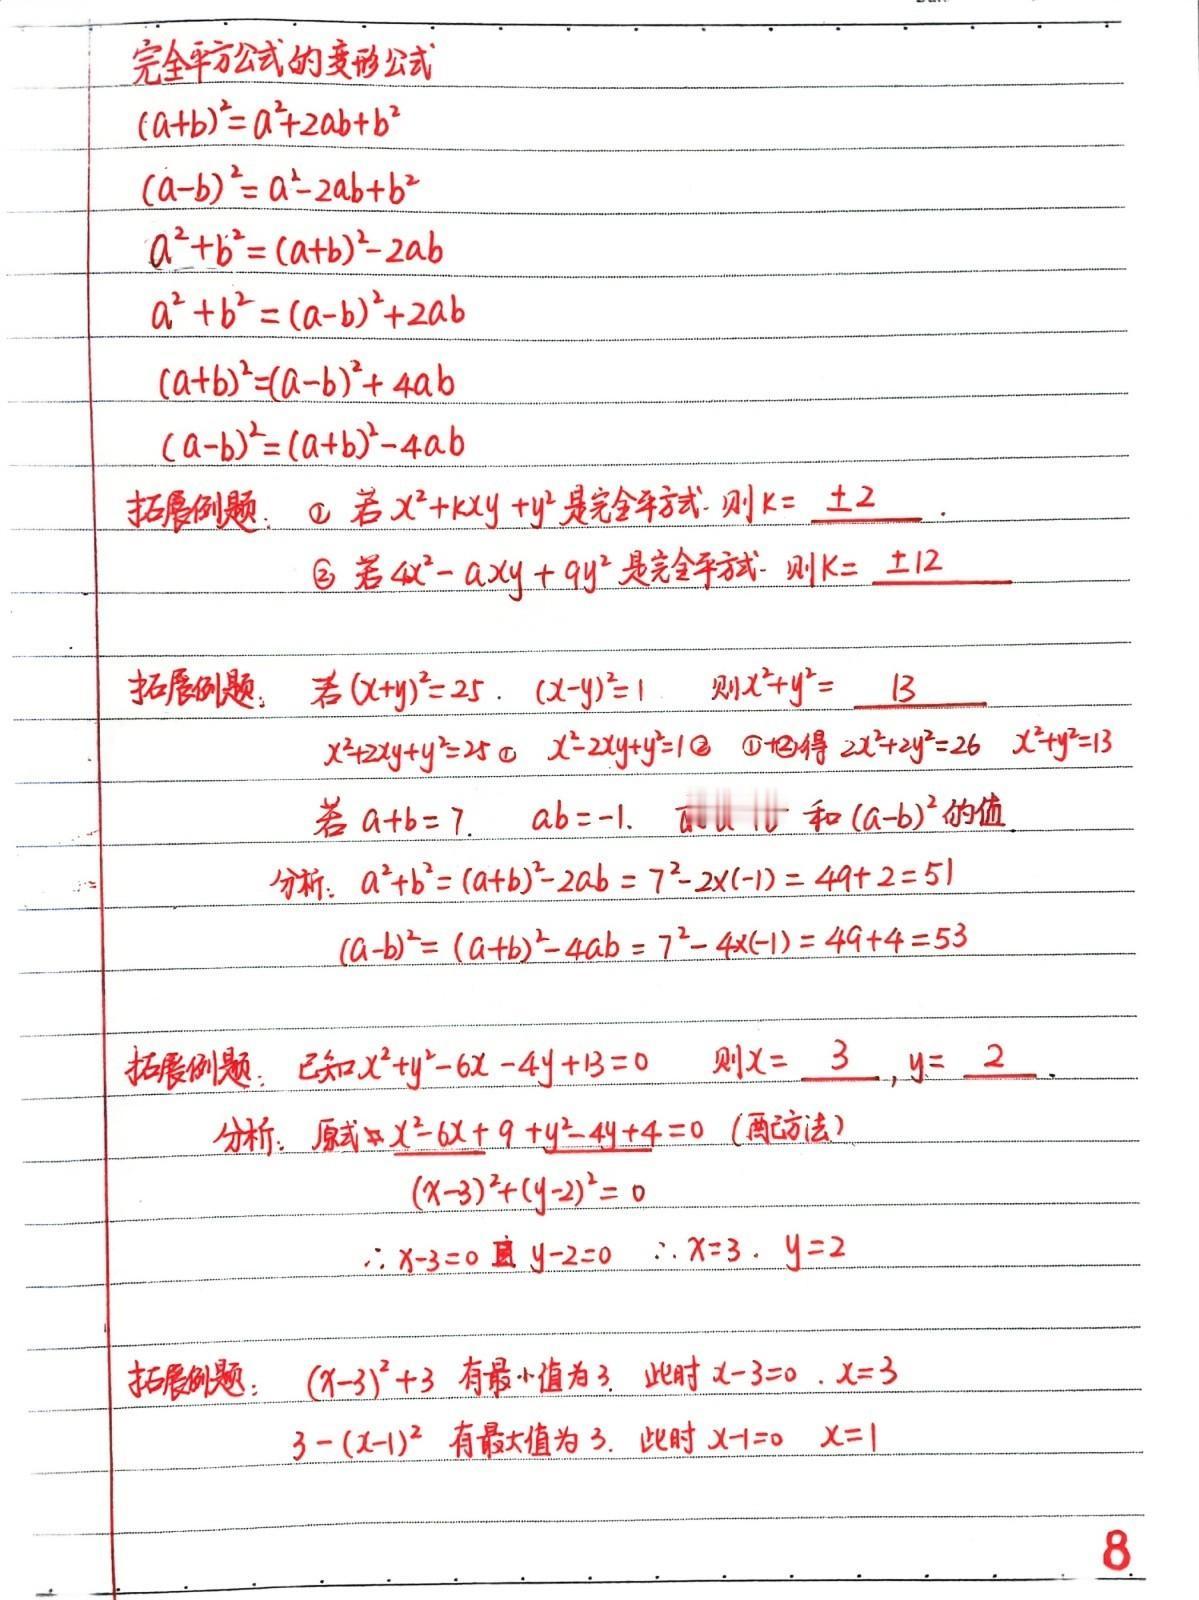 完全平方公式的变形公式
(a+b)²=a²+2ab+b²
(a-b)²=a²-2ab+b²
a²+b²=(a+b)²-2ab
a²+b²=(a-b)²+2ab
(a+b)²=(a-b)²+4ab
(a-b)²=(a+b)²-4ab
拓展例题: ① 若x²+kxy+y²是完全平方式.则k= ±2 .
② 若4x²-axy+9y²是完全平方式.则K= ±12
拓展例题: 若(x+y)²=25. (x-y)²=1 则x²+y²= 13
x²+2xy+y²=25① x²-2xy+y²=1② ①+②得 2x²+2y²=26 x²+y²=13
若a+b=7. ab=-1. 和(a-b)²的值.
分析: a²+b²=(a+b)²-2ab=7²-2x(-1)=49+2=51
(a-b)²=(a+b)²-4ab=7²-4x(-1)=49+4=53
拓展例题: 已知x²+y²-6x-4y+13=0 则x= 3 , y= 2 .
分析: 原式 x²-6x+9+y²-4y+4=0 (配方法)
(x-3)²+(y-2)²=0
∴x-3=0且y-2=0 ∴x=3. y=2
拓展例题: (x-3)²+3 有最小值为3. 此时x-3=0. x=3
3-(x-1)² 有最大值为3. 此时x-1=0 x=1
8